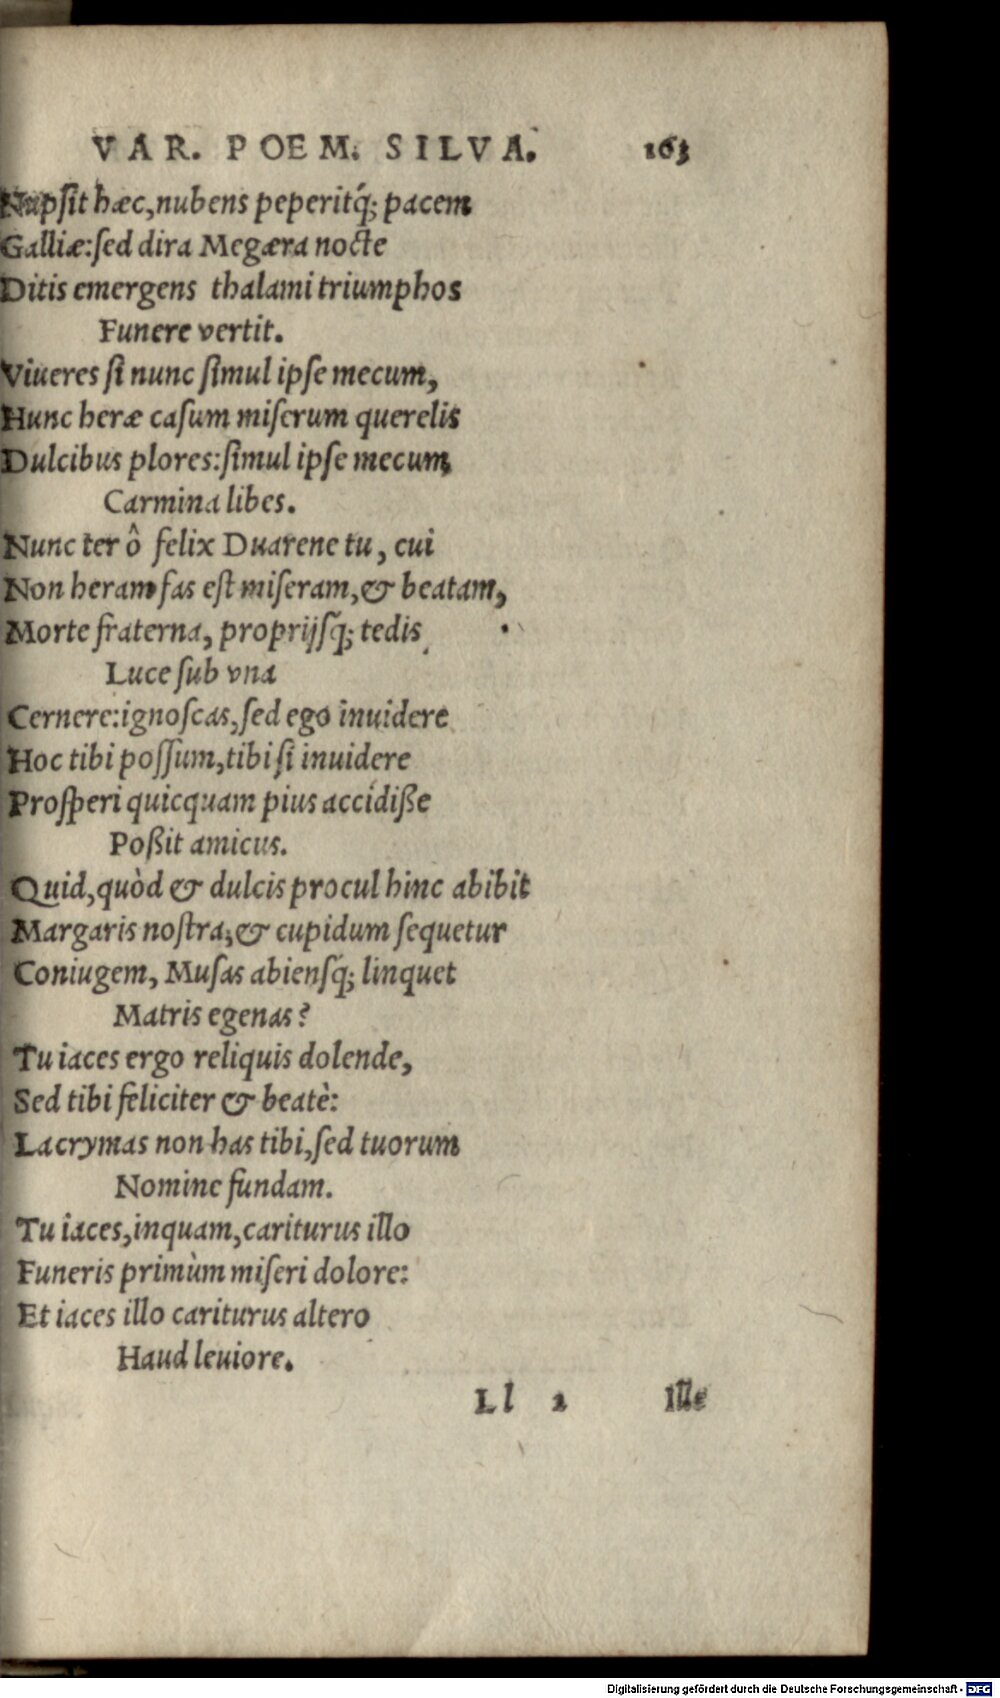 VAR. POEM. SILVA. 163
Nupsit hæc, nubens peperitq́; pacem
Galliæ: sed dira Megæra nocte
Ditis emergens thalami triumphos
Funere vertit.
Viueres si nunc simul ipse mecum,
Hunc heræ casum miserum querelis
Dulcibus plores: simul ipse mecum
Carmina libes.
Nunc ter ô felix Duarene tu, cui
Non heram fas est miseram, & beatam,
Morte fraterna, proprijsq́; tedis
Luce sub vna
Cernere: ignoscas, sed ego inuidere
Hoc tibi possum, tibi si inuidere
Prosperi quicquam pius accidiße
Poßit amicus.
Quid, quòd & dulcis procul hinc abibit
Margaris nostra, & cupidum sequetur
Coniugem, Musas abiensq́; linquet
Matris egenas?
Tu iaces ergo reliquis dolende,
Sed tibi feliciter & beatè:
Lacrymas non has tibi, sed tuorum
Nomine fundam.
Tu iaces, inquam, cariturus illo
Funeris primùm miseri dolore:
Et iaces illo cariturus altero
Haud leuiore.
Ll 2 Ille
Digitalisierung gefördert durch die Deutsche Forschungsgemeinschaft - DFG